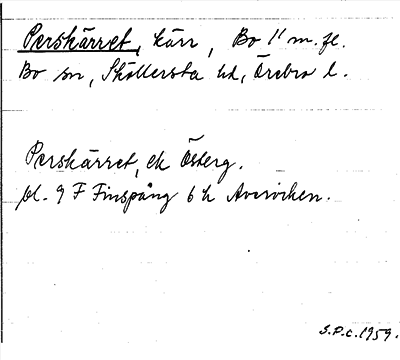 Perskärret, kärr, Bo 1¹ m. fl.
Bo sn, Sköllersta hd, Örebro l.
Perskärret, ek Österg.
bl. 9 F Finspång 6 h Avervken.
S.P.C. 1959.